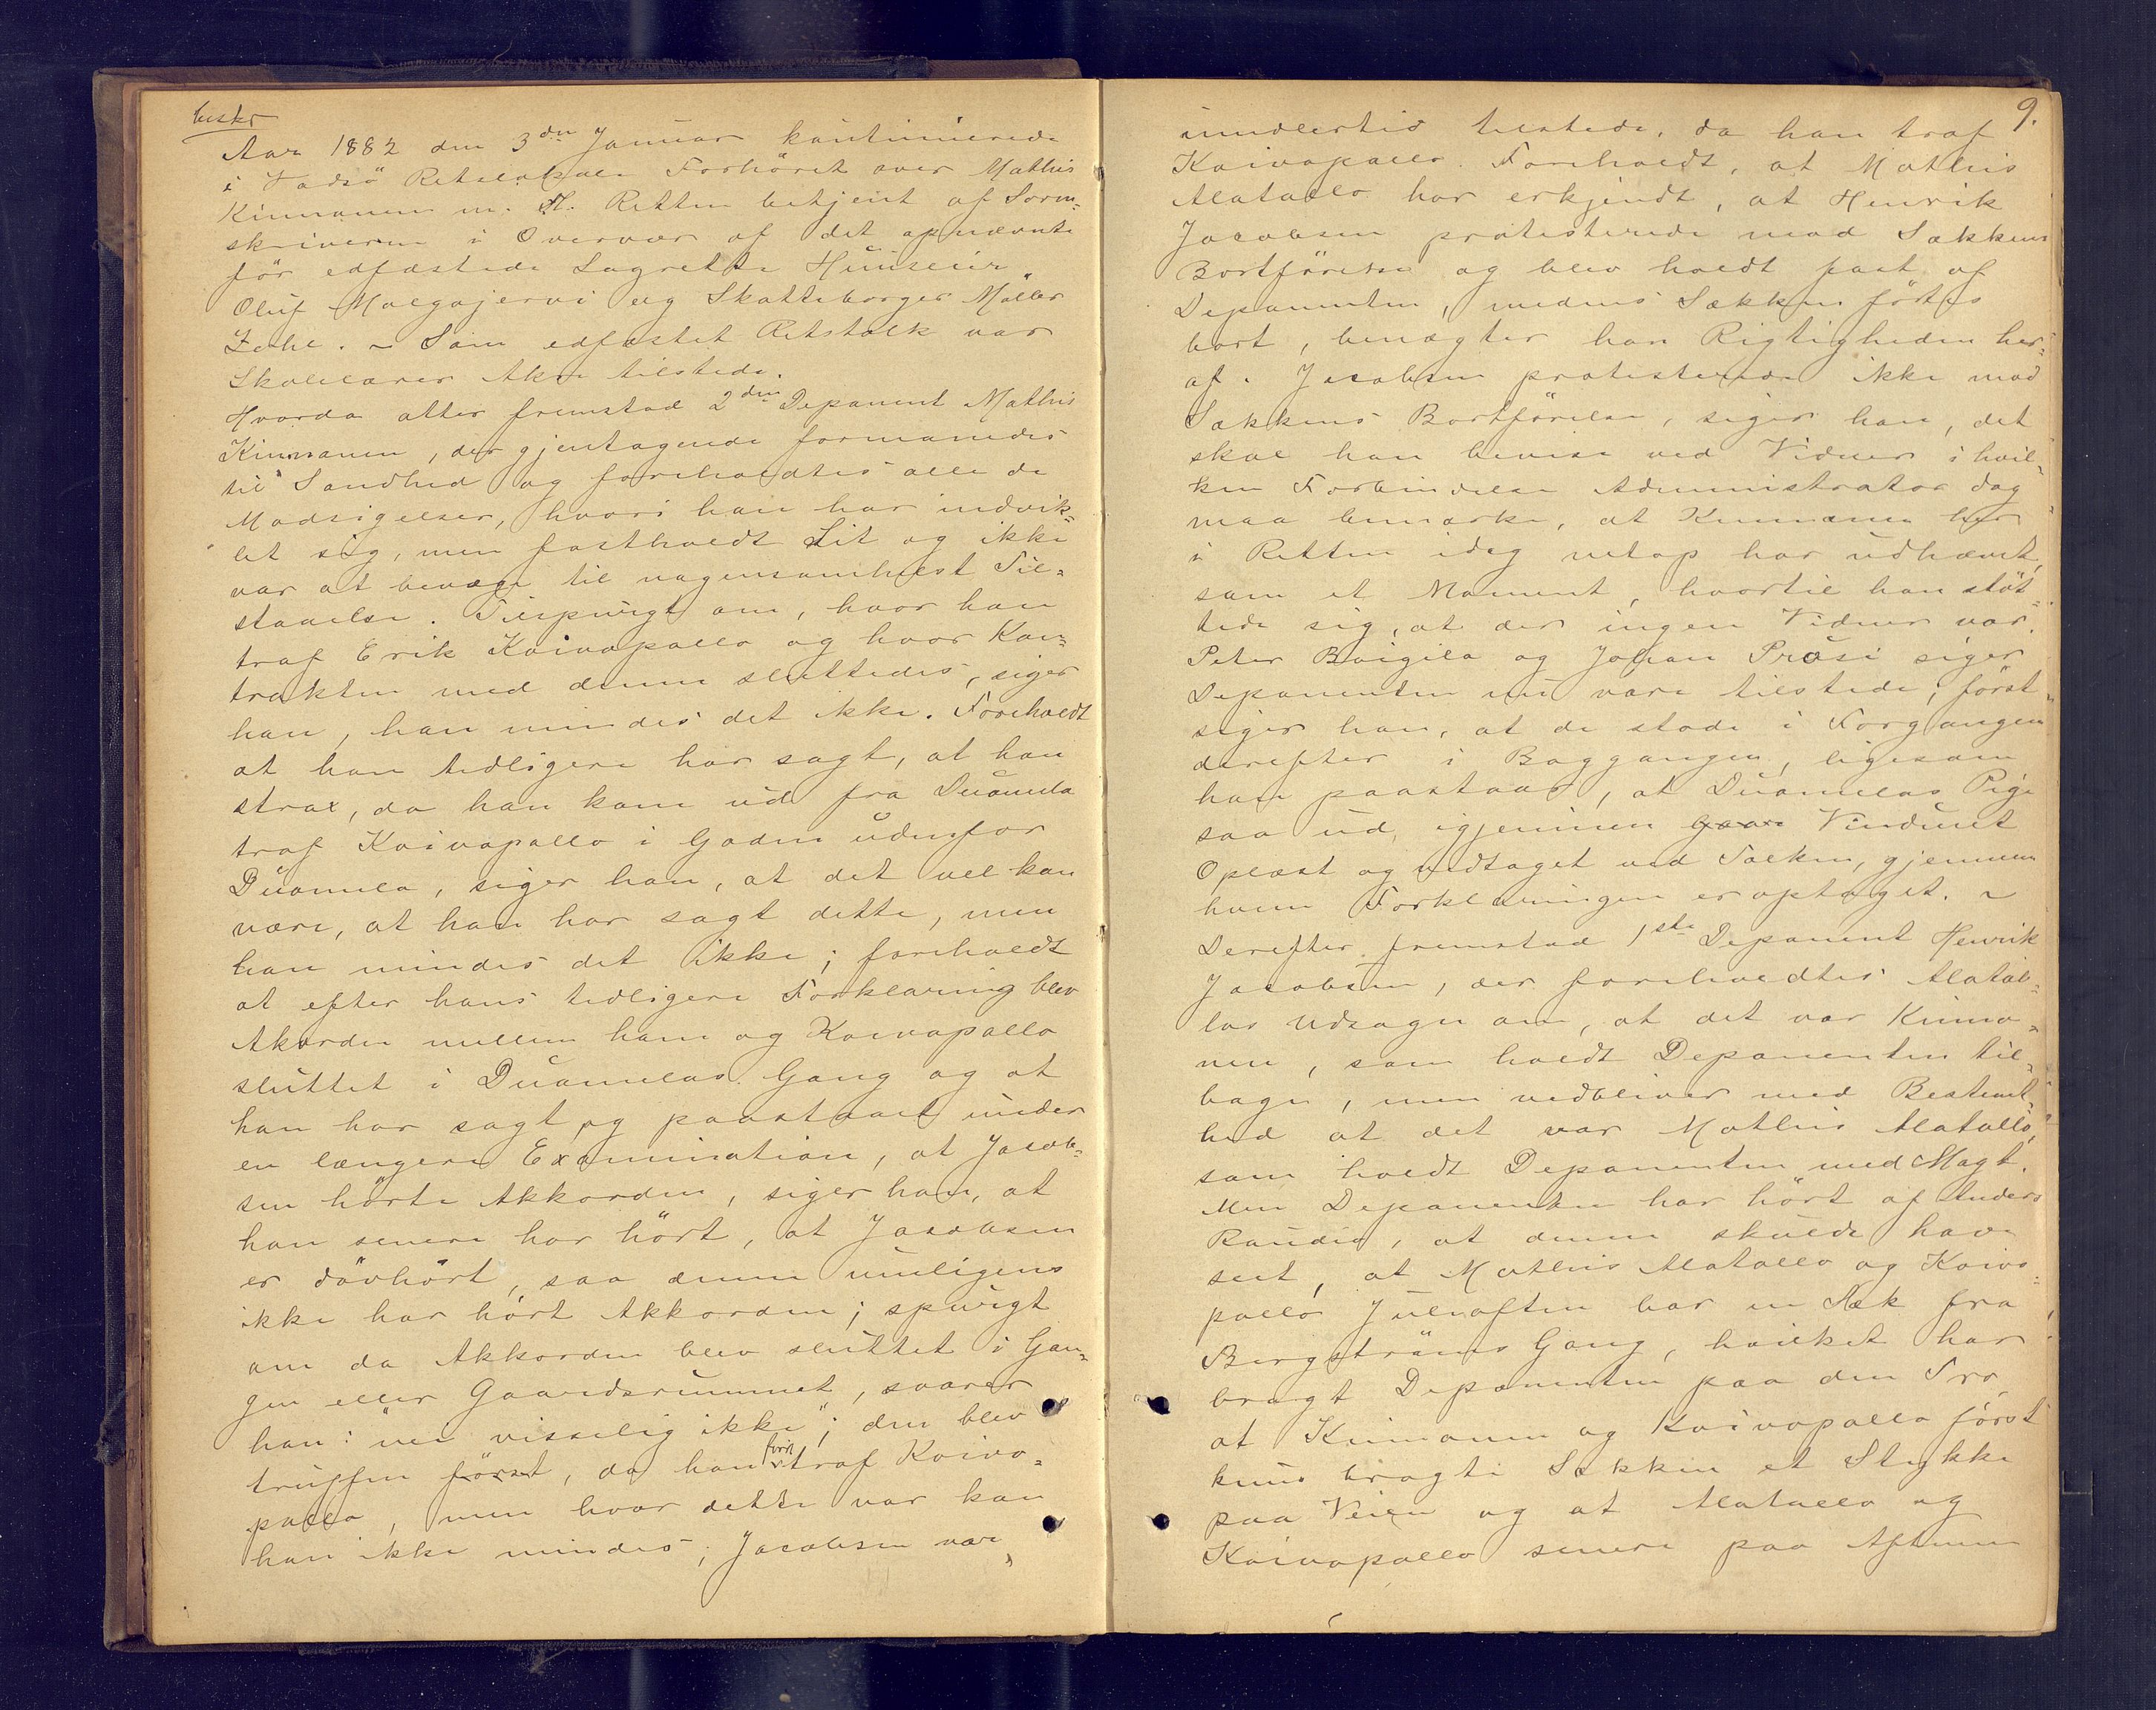 beskr
Aar 1882 den 3den Januar kontinuerede
i Vadsö Retslokale Forhöret over Mathis
Kinnanen m. fl. Retten betjent af Soren-
skriveren i Overvær af det opnævnte
för edfæstede Lagrette Huuseier
Oluf Molgajervi og Skatteborger Møller
. - Som edfæstet Retstolk var
Skolelærer Aker tilstede.
Hvorda atter fremstod 2den Deponent Mathis
Kinnanen, der gjentagende formanedes
til Sandhed og foreholdtes alle de
Modsigelser, hvori han har indvik-
let sig, men fastholdt Sit og ikke
var at bevæge til nogensomhelst Til-
staaelse. Tilspurgt om, hvor han
traf Erik Koivopallo og hvor Kon-
trakten med denne sluttedes, siger
han, han mindes det ikke. Foreholdt
at han tidligere har sagt, at han
strax, da han kom ud fra Duomela
traf Koivopallo i Gaden udenfor
Duomela, siger han, at det vel kan
være, at han har sagt dette, men
han mindes det ikke; foreholdt
at efter hans tidligere Forklaring blev
Akorden mellem ham og Koivopallo
sluttet i Duomelas Gang og at
han har sagt og paastaaet under
en længere Examination, at Jacob-
sen hörte Akkorden, siger han, at
han senere har hört, at Jacobsen
er dövhört, saa denne umuligens
ikke har hört Akkorden; spurgt
om da Akkorden blev sluttet i Gan-
gen eller Gaardsrummet, svarer
han: "nei visselig ikke"; den blev
truffen först, da han först traf Koivo-
pallo, men hvor dette var kan
han ikke mindes; Jacobsen var
9.
imidlertid tilstede, da han traf
Koivopallo. Foreholdt, at Mathis
Alatallo har erkjendt, at Henrik
Jacobsen protesterede mod Sækkens
Bortförelse og blev holdt fast af
Deponenten, medens Sækken förtes
bort, benægter han Rigtigheden her-
af. Jacobsen protesterede ikke mod
Sækkens Bortförelse, siger han, det
skal han bevise ved Vidner i hvil-
ken Forbindelse Administrator dog
maa bemærke, at Kinnanen her
i Retten idag netop har udhævet,
som et Moment, hvortil han stöt-
tede sig, at der ingen Vidner var.
Peter Boigila og Johan Präsi siger
Deponenten nu være tilstede; först
siger han, at de stode i Forgangen
derefter i Baggangen, ligesom
han paastaar, at Duomelas Pige
saa ud igjennem Vinduet
Oplæst og vedtaget ved Tolken, gjennem
hvem Forklaringen er optaget. -
Derefter fremstod 1ste Deponent Henrik
Jacobsen, der foreholdtes Alatal-
los Udsagn om, at det var Kinna-
nen, som holdt Deponenten til-
bage, men vedbliver med Bestemt-
hed at det var Mathis Alatallo,
som holdt Deponenten med Magt.
Men Deponenten har hört af Anders
Raudio, at denne skulde have
seet, at Mathis Alatallo og Koivo-
pallo Juleaften bar en Sæk fra
Bergströms Gang, hvilket har
bragt Deponenten paa den Tro,
at Kinnanen og Koivopallo först
kuns bragte Sækken et Stykke
paa Veien og at Alatallo og
Koivopallo senere paa Aftenen